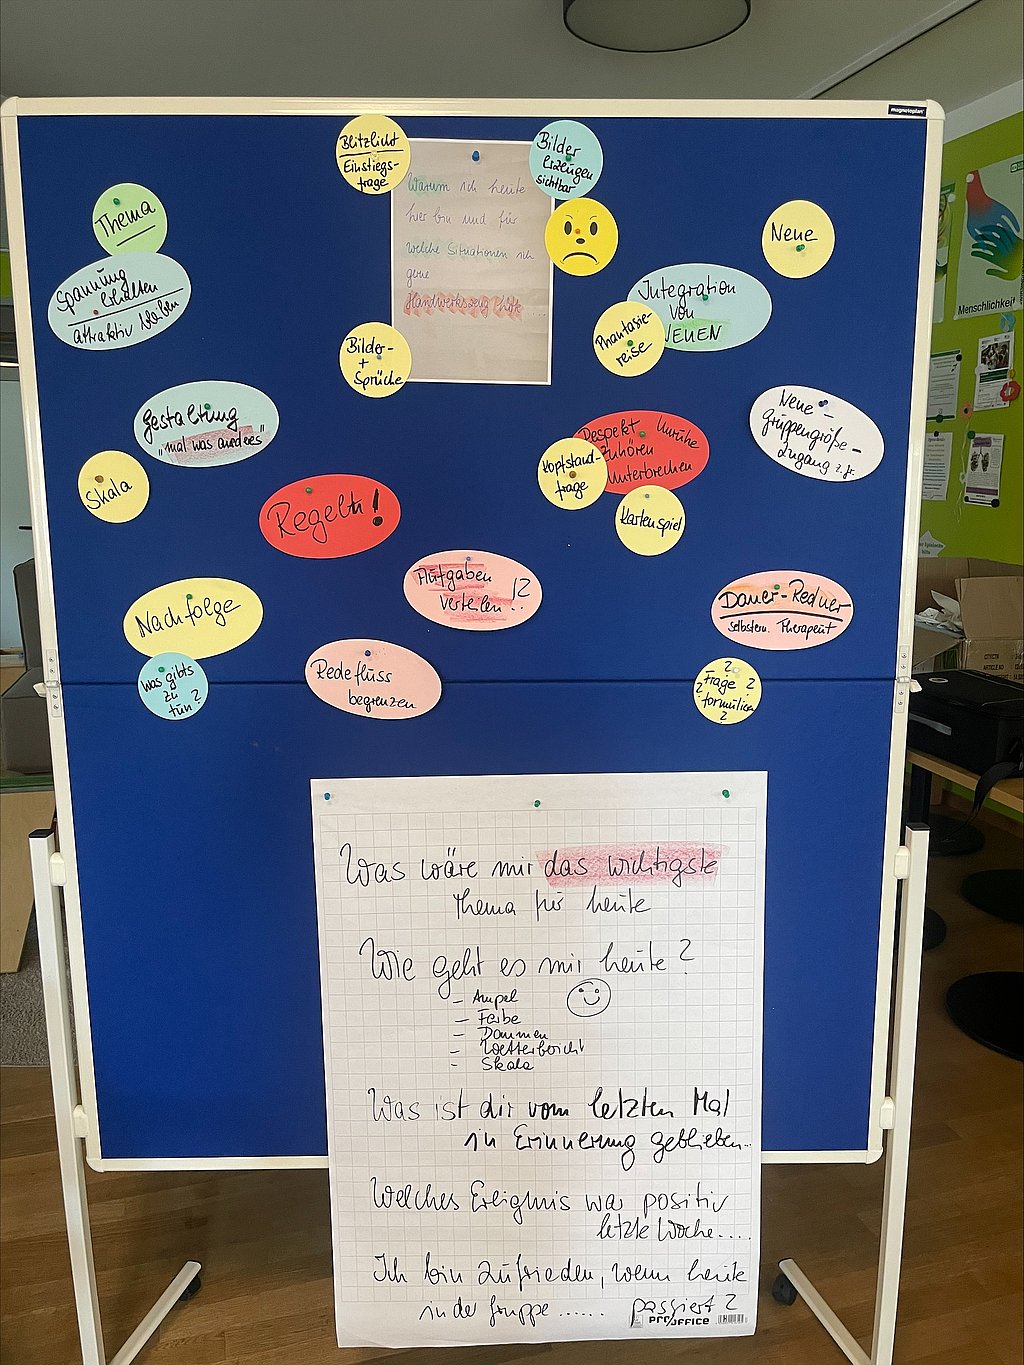 magnetoplan
Blitzlicht
Einstiegs-
frage
Warum ich heute
hier bin und für
welche Situationen ich
gerne
Handwerkszeug hätte ...
Bilder
erzeugen
sichtbar
Thema
Spannung
erhalten
attraktiv bleiben
Neue
Integration
von
NEUEN
Phantasie-
reise
Bilder-
+
Sprüche
Gestaltung
"mal was anderes"
Skala
Regeln!
Respekt Unruhe
Zuhören
Unterbrechen
Kopfstand-
frage
Kartenspiel
Neue-
gruppengröße-
Zugang z. Gr.
Aufgaben
verteilen!?
Nachfolge
was gibts
zu
tun?
Redefluss
begrenzen
Dauer-Redner
selbstern. Therapeut
?
? Frage ?
formulieren
?
Menschlichkeit
Was wäre mir das wichtigste
Thema für heute
Wie geht es mir heute?
- Ampel
- Farbe
- Daumen
- Wetterbericht
- Skala
Was ist dir vom letzten Mal
in Erinnerung geblieben...
Welches Ereignis war positiv
letzte Woche....
Ich bin zufrieden, wenn heute
in der Gruppe ...... passiert?
PRO/OFFICE